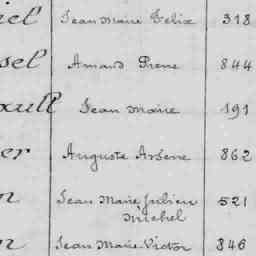 iel Jean Marie Felix 318
sel Amand Pierre 844
xull Jean Marie 191
er Auguste Arsène 862
n Jean Marie Julien 521
Michel
n Jean Marie Victor 846